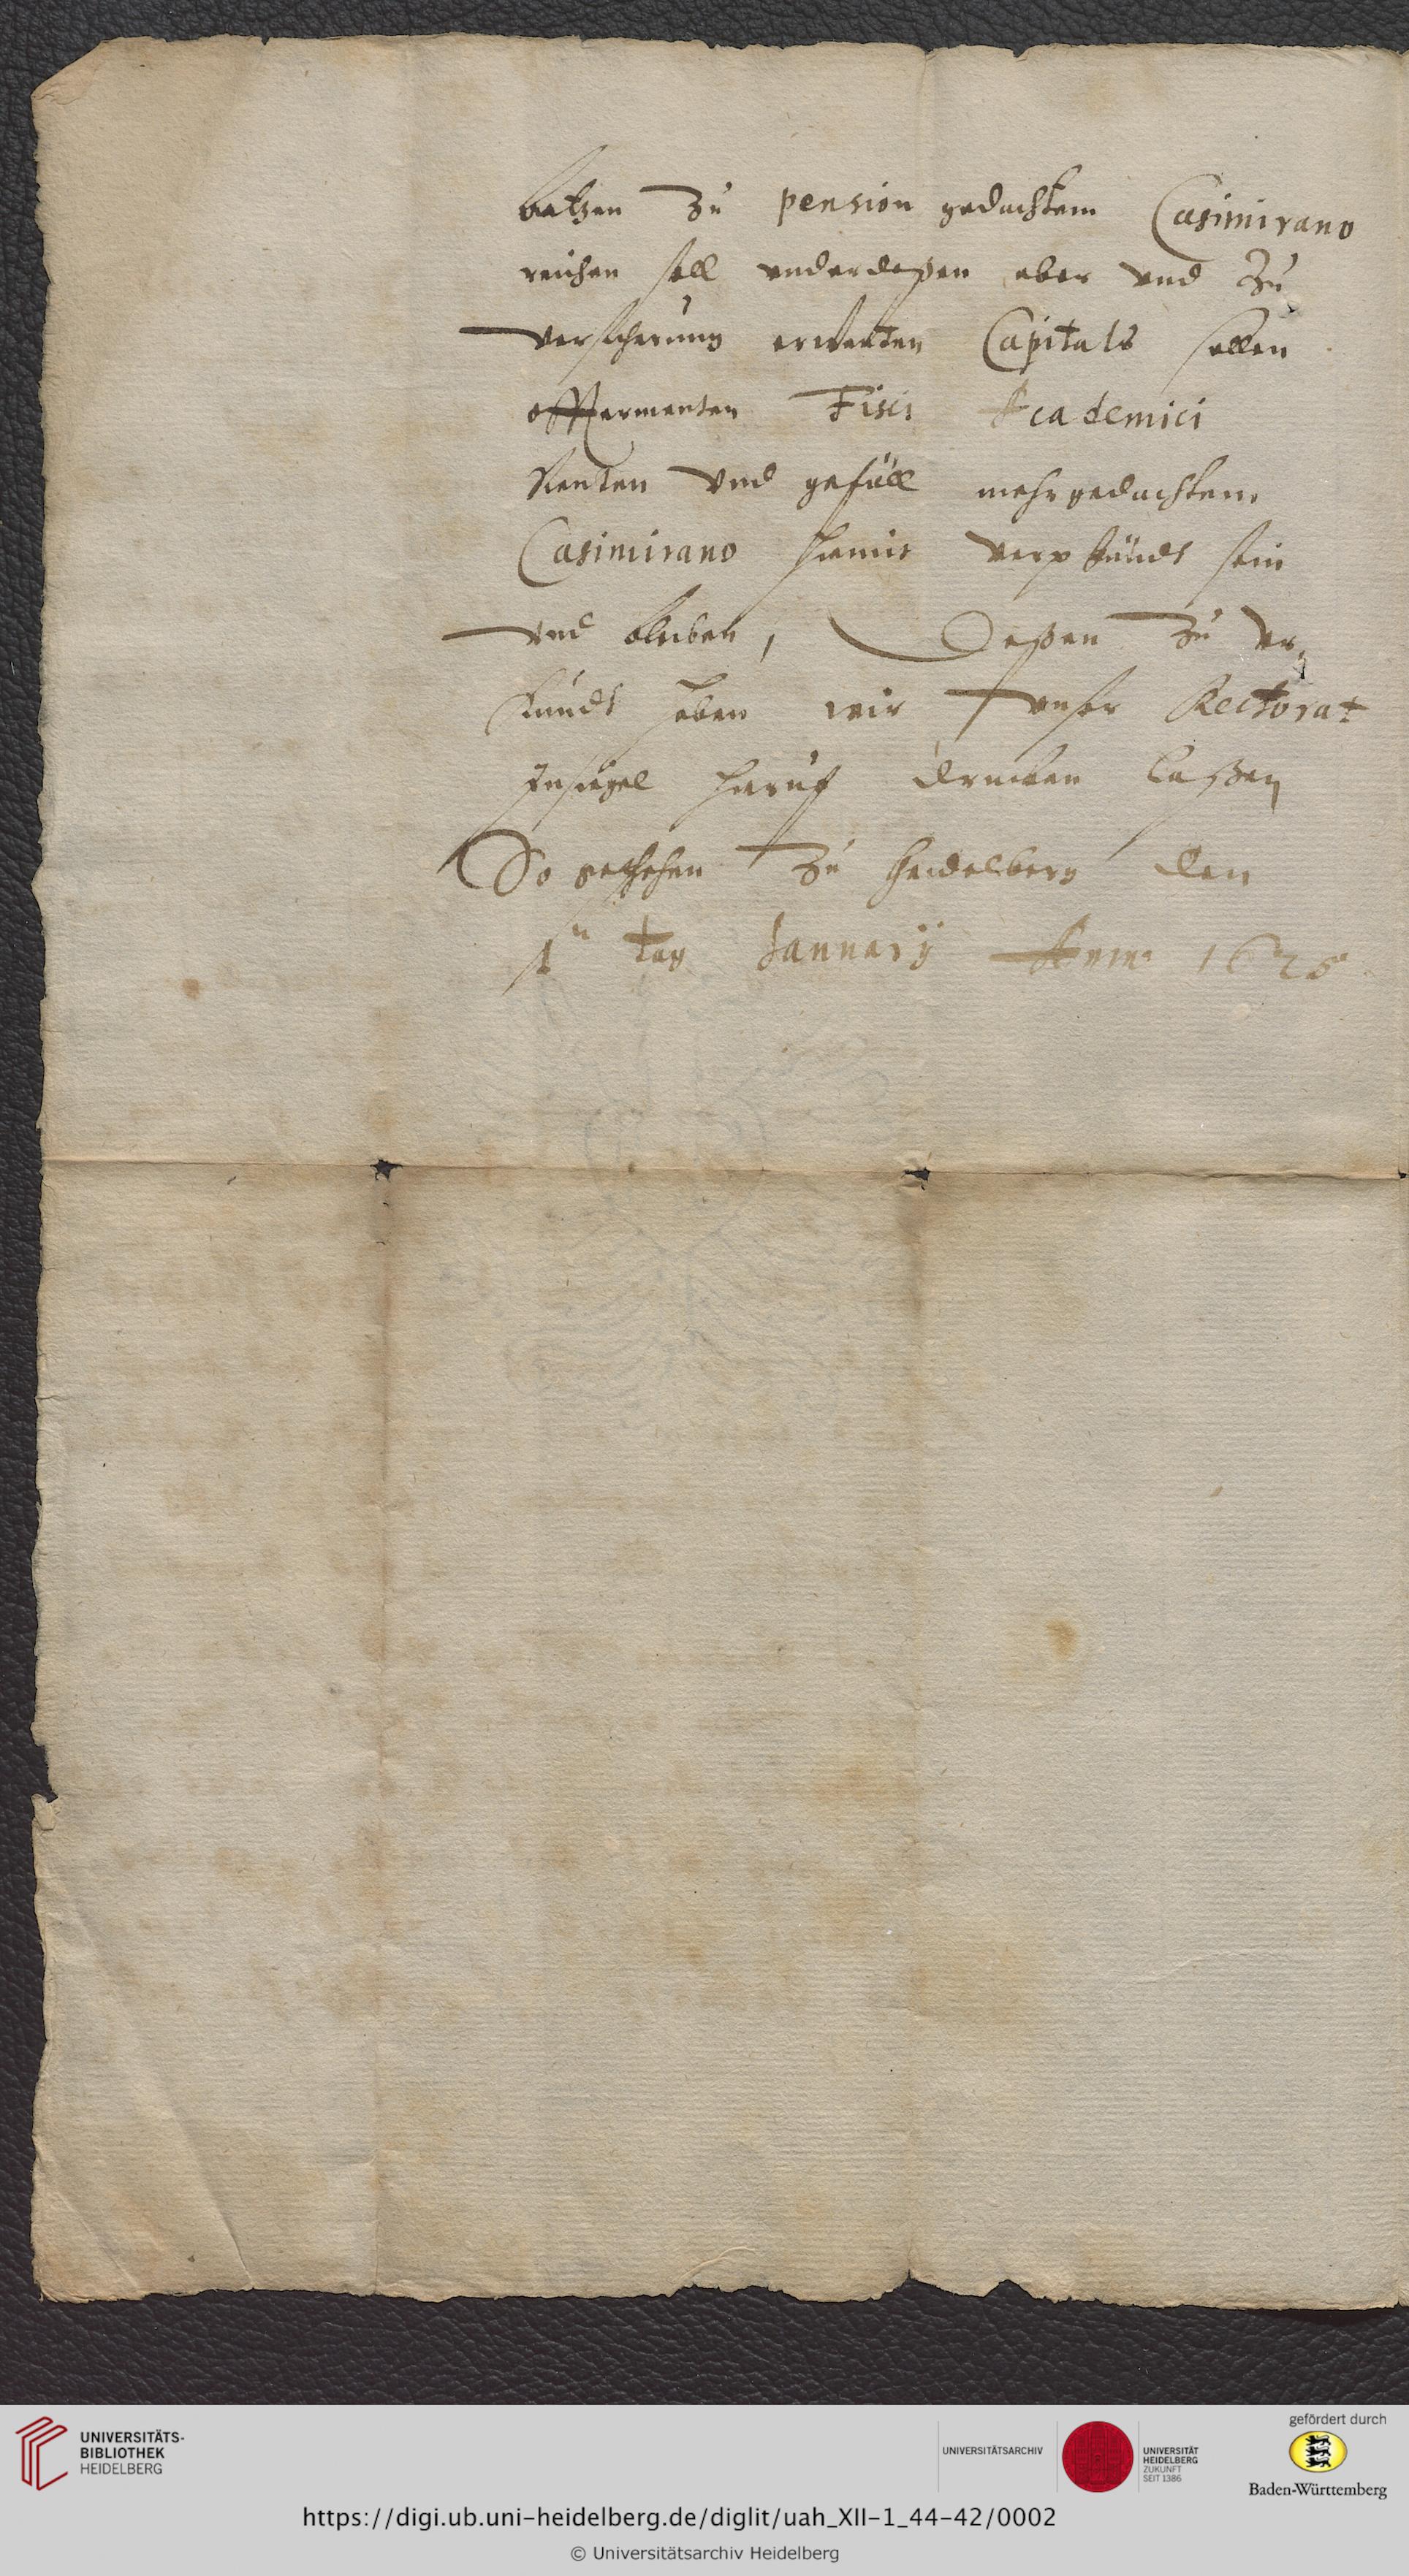 batzen zu pension gedachtem Casimirano
reichen soll underdeßen aber und zu
versicherung ermelten Capitals sollen
offtermenten Fisci Academici
Renten vnd gefäll mehrgedachtem
Casimirano hiemit verpfündt sein
vnd bleiben, Deßen zu vr,
kundt haben wir vnser Rectorat
Insiegel hieruf drucken laßen
So geschehen zu Heidelberg den
tag January Anno
UNIVERSITÄTS-
BIBLIOTHEK
HEIDELBERG
UNIVERSITÄTSARCHIV
UNIVERSITÄT
HEIDELBERG
ZUKUNFT
SEIT 1386
gefördert durch
Baden-Württemberg
https://digi.ub.uni-heidelberg.de/diglit/uah_XII-1_44-42/0002
© Universitätsarchiv Heidelberg